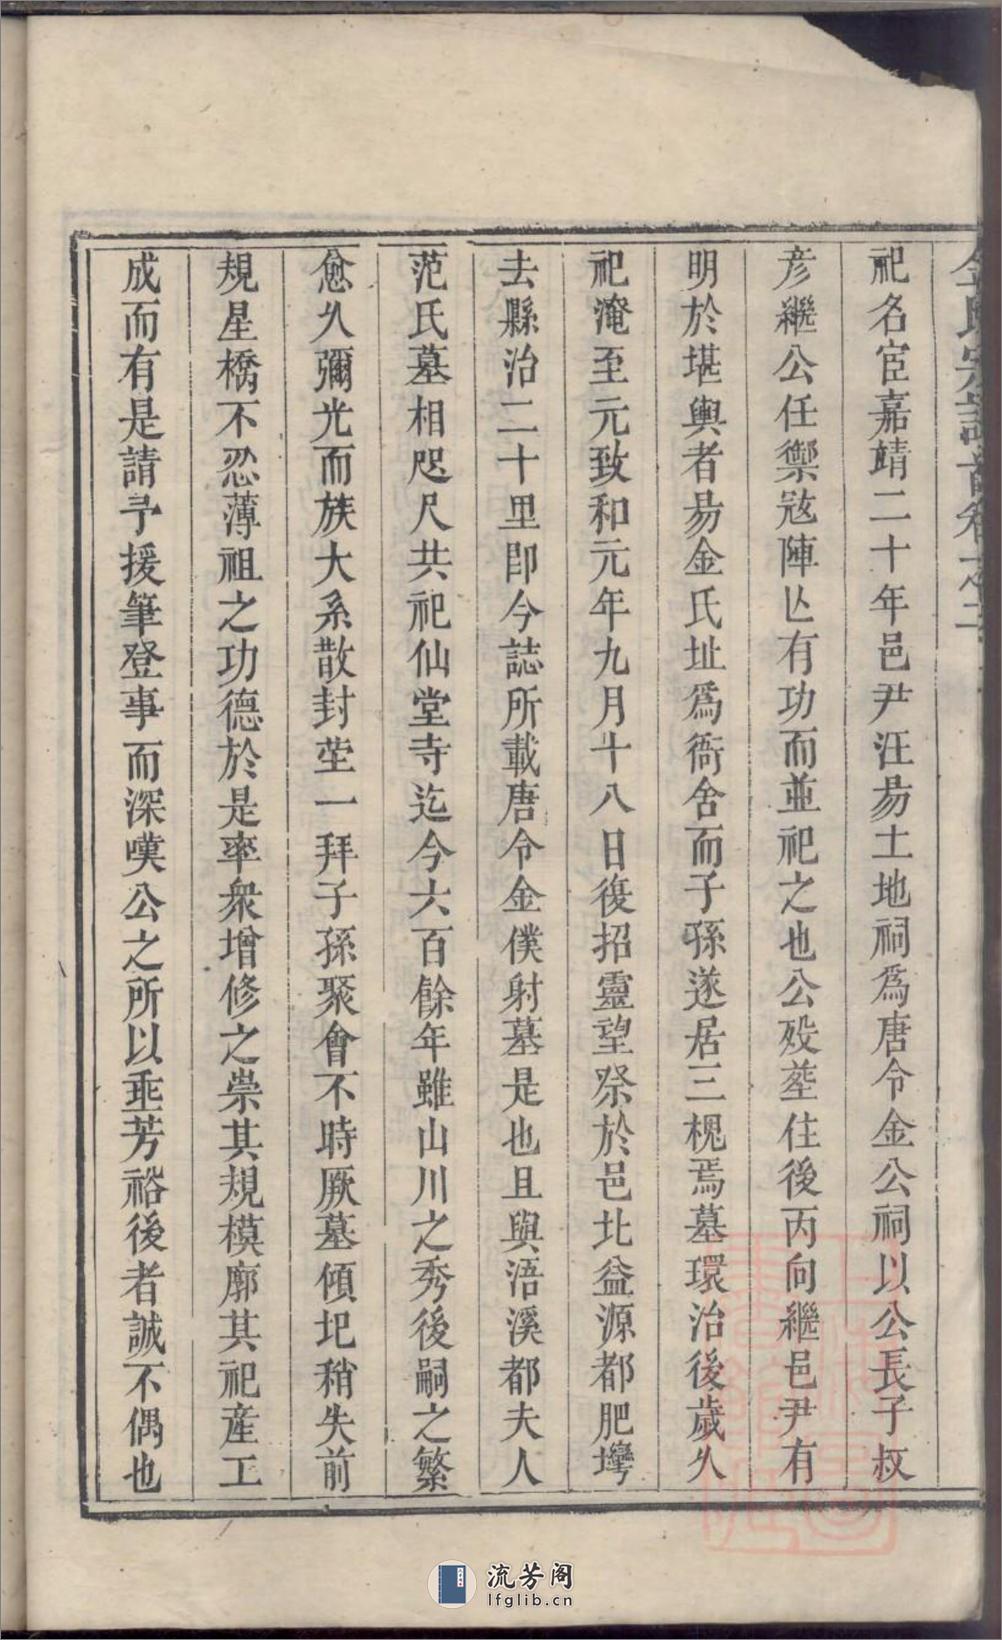 金氏宗譜首卷之二
祀名宦嘉靖二十年邑尹汪易土地祠爲唐令金公祠以公長子叔
彦繼公任禦寇陣亾有功而並祀之也公殁塟住後丙向繼邑尹有
明於堪輿者易金氏址爲衙舍而子孫遂居三槐焉墓環治後歲久
祀淹至元致和元年九月十八日復招靈望祭於邑北益源都肥塆
去縣治二十里卽今誌所載唐令金僕射墓是也且與浯溪都夫人
范氏墓相咫尺共祀仙堂寺迄今六百餘年雖山川之秀後嗣之繁
愈久彌光而族大系散封塋一拜子孫聚會不時厥墓傾圯稍失前
規星橋不忍薄祖之功德於是率衆增修之崇其規模廓其祀產工
成而有是請予援筆登事而深嘆公之所以垂芳裕後者誠不偶也
流芳阁
lfglib.cn